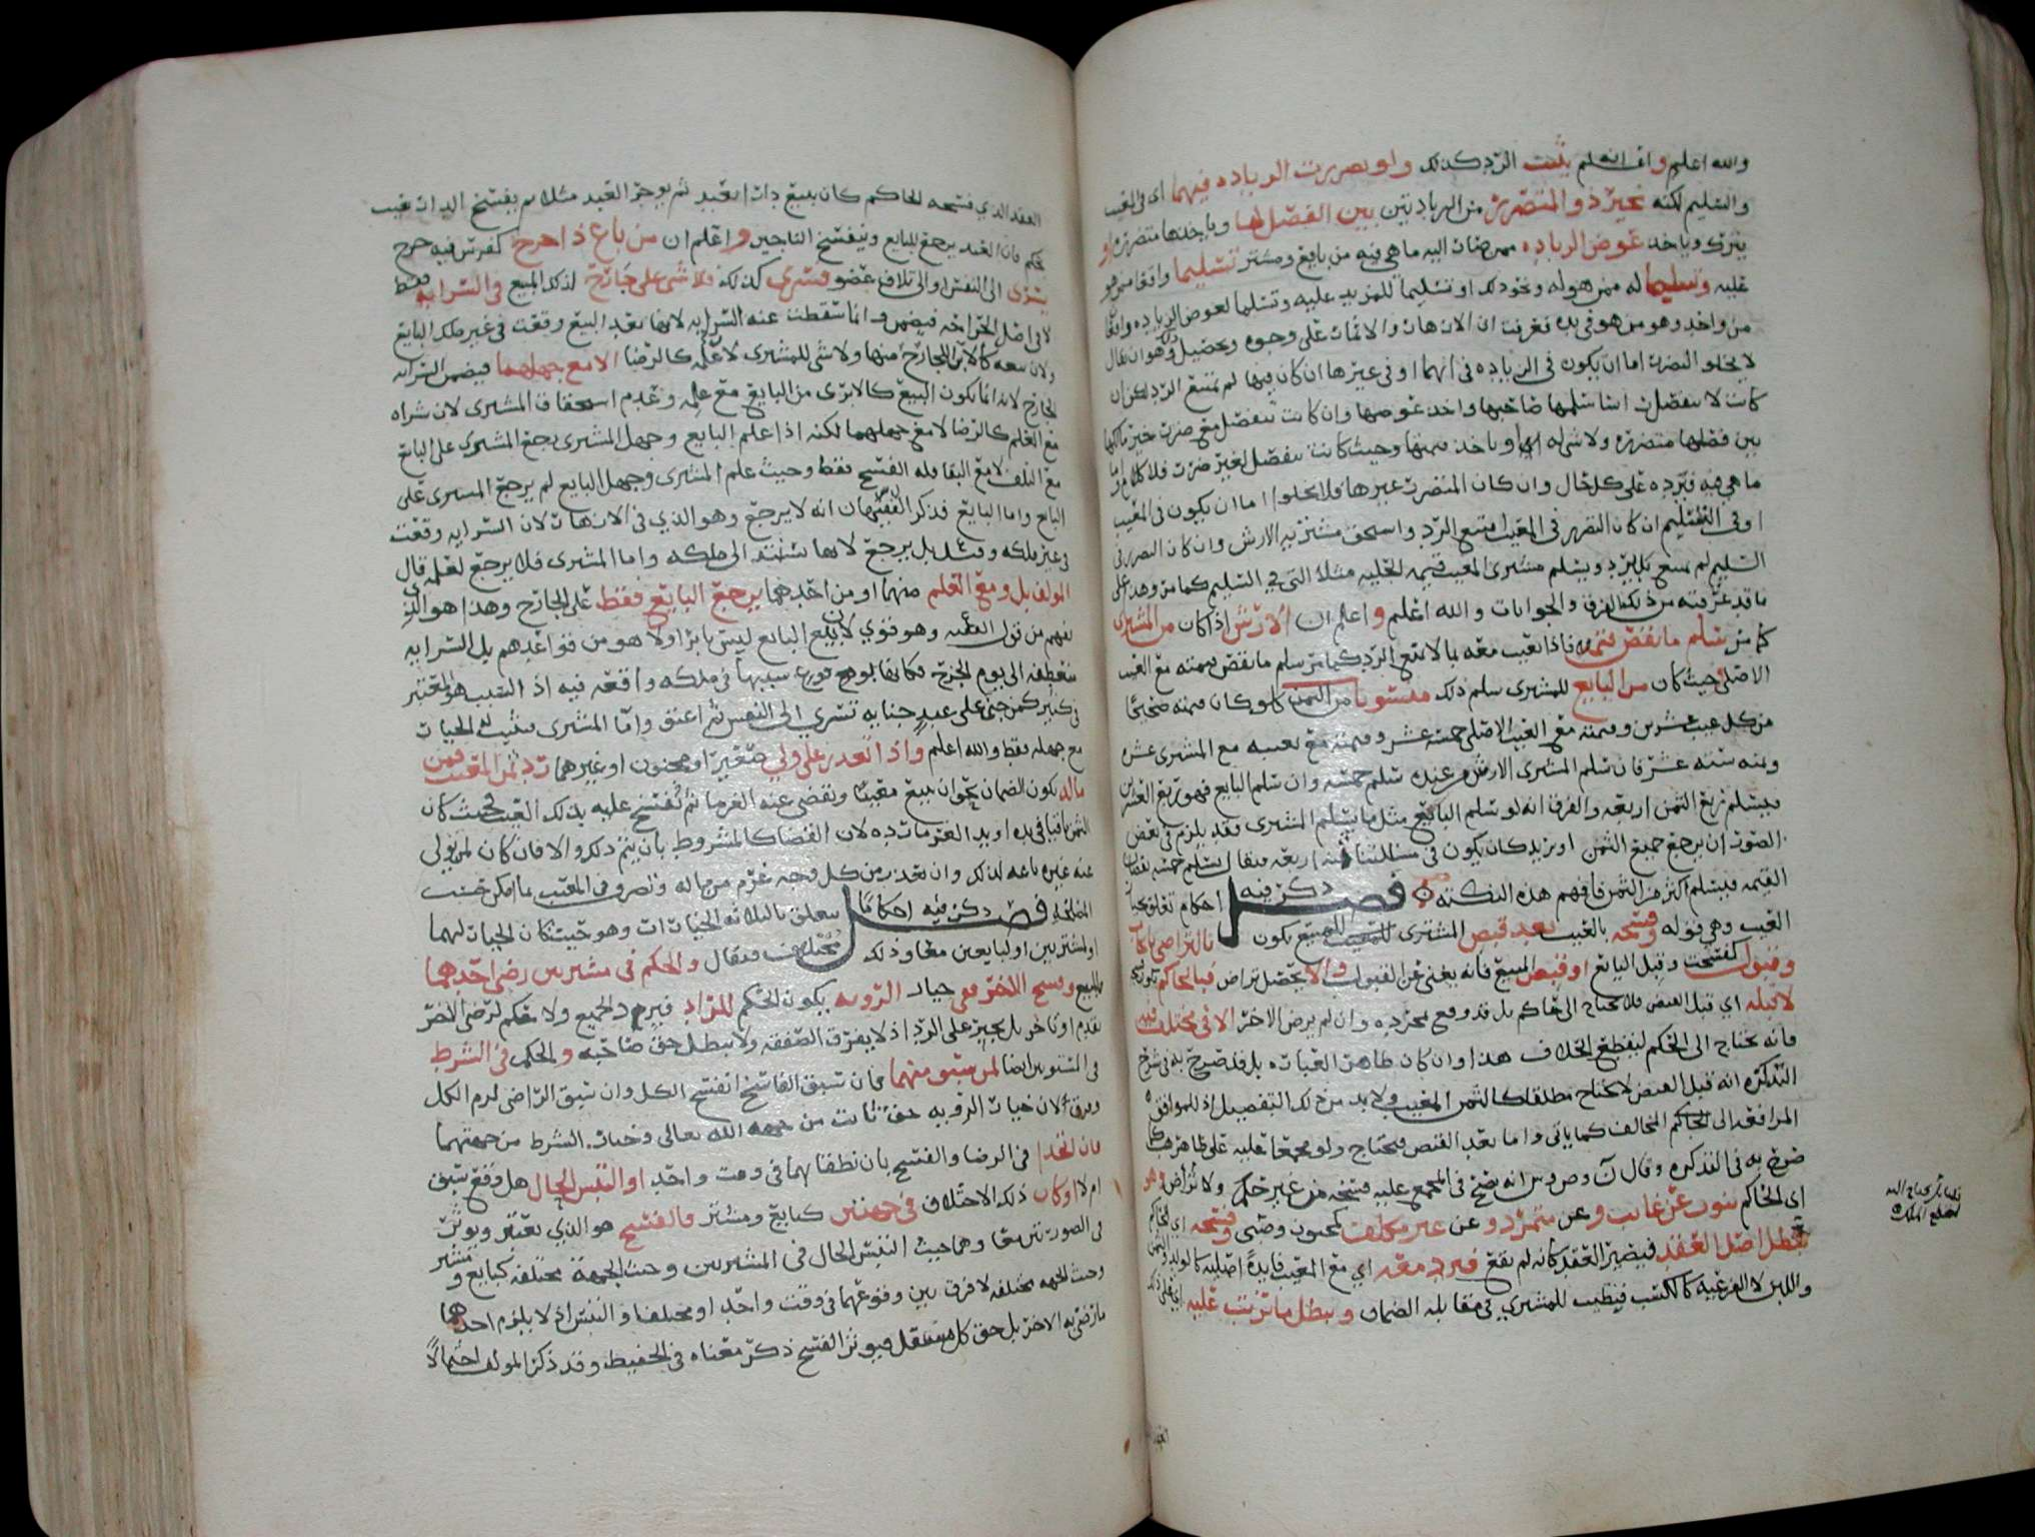 والله اعلم واف انه لم يثبت الرد كذلك ولو تضررت الزياده فيهما اى فى المعيب
والسليم لكنه يخير ذو المتضررة من الزيادتين بين الفصل لها وياخذها متضرره او
يترك وياخذ عوض الزياده ممن صارت اليه ما هى فيه من بايع ومشتر تسليما واقعا ممن هو
عليه وتسليما له ممن هو له ونحو ذلك او تسليما للمزيد عليه وتسليما لعوض الزياده واقعا
من واخذ وهو من هو فى يده فعرفت ان الازهار والاثمار على وجوه وتحصيل ذلك وهو ان يقال
لا يخلو التضرر اما ان يكون فى الزياده فى ايهما او فى غيرها ان كان فيها لم يمتنع الرد لكن ان
كانت لا تنفصل اسا سلمها صاحبها واخذ عوضها وان كانت تنفصل مع ضرر خير مالكها
بين فصلها متضرره ولا شى له او ياخذ قيمتها وحيث كانت تنفصل لغير ضرر فلا كلام
ما هى فيه فيرده على كل حال وان كان المتضرر غيرها فلا يخلو اما ان يكون فى المعيب
او فى السليم ان كان التضرر فى المعيب امتنع الرد واستحق مشتريه الارش وان كان التضرر فى
السليم لم يمتنع بل يرد ويسلم مشترى المعيب قيمه الحليه مثلا التى فى السليم كما مر وهذا على
ما قد عرفته من ذلك الفرق والجوابات والله اعلم واعلم ان الارش اذا كان من المشترى
كما مر سلم ما نقص قيمته فاذا تعيب معه بما لا يمنع الرد كما مر سلم ما نقص قيمته مع العيب
الاصلى حيث كان من البايع للمشترى سلم ذلك منسوبا من الثمن كما لو كان قيمته صحيحا
من كل عيب عشرين وقيمته مع العيب الاصلى خمسة عشر وقيمته مع تعيبه مع المشترى عشره
وثمنه ستة عشر فان سلم المشترى الارش من عنده سلم خمسه وان سلم البايع فهو ربع العشرين
فيسلم ربع الثمن اربعه والفرق انه لو سلم البايع مثل ما يسلم المشترى فقد يلزم فى بعض
الصور ان يرجع جميع الثمن او يزيد كان يكون فى مسئلتنا ثمنه اربعه فيقال يسلم خمسه نقصان
القيمه فيسلم اكثر من الثمن فافهم هذه النكته فصل ذكر فيه احكام تعلق بخيار
العيب وهى قوله وفسخه بالعيب بعد قبض المشترى للمبيع يكون بالتراضى
وقبول كفسخت وقبل البايع او قبض المبيع فانه يغنى عن القبول والا يحصل تراض فبالحاكم
لا قبله اى قبل القبض فلا يحتاج الى حاكم بل قد وقع بمجرده وان لم يرض الاخر الا فى مختلف فيه
فانه يحتاج الى الحكم ليقطع الخلاف هذا وان كان ظاهر العباره بل قد صرح به فى شرح
التذكره انه قبل القبض لا يحتاج مطلقا كالثمن المعيب ولا بد من ذلك التفصيل اذ للموافق
المرافعه الى الحاكم المخالف كما ياتى واما بعد القبض فيحتاج ولو مجمعا عليه على ظاهر
صرح به فى التذكره وقال انه يصح فى المجمع عليه فسخه من غير حكم ولا تراض وهو
اى الحاكم ينوب عن غايب وعن متمرد وعن غير مكلف كمجنون وصبى وفسخه اى الحاكم
يبطل اصل العقد فيصير العقد كانه لم يقع فيرد معه اى مع المعيب فايدة اصليه كالولد
واللبن لا الفرعيه كالكسب فيطيب للمشترى فى مقابله الضمان ويبطل ما ترتب عليه
العقد الذى فسخه الحاكم كان يبيع دارا بعبد ثم يوجر العبد مثلا ثم يفسخ الدار بعيب
بحكم فان العبد يرجع للبايع وينفسخ التاجير واعلم ان من باع ذا جرح كفرس فيه جرح
يسرى الى النفس او الى تلاف عضو فسرى كذلك فلا شى على جارح لذلك المبيع فى السرايه فقط
لا فى اصل الجراحه فيضمن وانما سقطت عنه السرايه لانها بعد البيع وقعت فى غير ملك البايع
ولان بيعه كالابرا للجارح منها ولا شى للمشترى لان علمه كالرضا الا مع جهلهما فيضمن السرايه
الجارح لانه انما يكون البيع كالابرا من البايع مع علمه وعدم استحقاق المشترى لان شراه
مع العلم كالرضا لا مع جهلهما لكنه اذا علم البايع وجهل المشترى رجع المشترى على البايع
مع التلف لا مع البقا فله الفسخ فقط وحيث علم المشترى وجهل البايع لم يرجع المشترى على
البايع واما البايع فذكر الفقيهان انه لا يرجع وهو الذى فى الازهار لان السرايه وقعت
فى غير ملكه وقيل بل يرجع لانها تستند الى ملكه واما المشترى فلا يرجع لعلمه قال
المولف بل ومع العلم منهما او من احدهما يرجع البايع فقط على الجارح وهذا هو الذى
يفهم من قول الفقيه وهو قوى لان بيع البايع ليس بابرا ولا هو من قواعدهم بل السرايه
منعطفه الى يوم الجرح فكانها لوقوع سببها فى ملكه واقعه فيه اذ السبب هو المعتبر
فى كثير كمن جنى على عبد جنايه تسرى الى النفس ثم اعتق واما المشترى فيثبت له الخيار
مع جهله فقط والله اعلم واذا تعذر على ولى صغير او مجنون او غيرهما رد ثمن المعيب فمن
ماله تكون الضمان نحو ان يبيع معيبا ويقضى عنه الغرما ثم يفسخ عليه بذلك العيب فحيث كان
الثمن باقيا فى يده او يد الغرما رده لان القضا كالمشروط بان يتم ذلك والا فان كان لمن تولى
عنه غيره باعه لذلك وان تعذر من كل وجه غرم من ماله وتصرف فى المعيب بما امكن حسب
المصلحه فصل ذكر فيه احكاما يتعلق بالثلاثه الخيارات وهو حيث كان الخيار لهما
او لمشتريين او لبايعين معا وذلك مختلف فقال والحكم فى مشتريين رضى احدهما
بالمبيع وفسخ الاخر فى خيار الرؤيه يكون الحكم للراد فيرد الجميع ولا حكم لرضى الاخر
تقدم او تاخر بل يجبر على الرد اذ لا يفرق الصفقه ولا يبطل حق صاحبه والحكم فى الشرط
فى المشتريين ايضا لمن سبق منهما فان سبق الفاسخ انفسخ الكل وان سبق الراضى لزم الكل
والفرق ان خيار الرؤيه حق ثابت من جهه الله تعالى وخيار الشرط من جهتهما
فان اتحدا فى الرضا والفسخ بان نطقا بهما فى وقت واحد او التبس الحال هل وقع سبق
ام لا او كان ذلك الاختلاف فى جهتين كبايع ومشتر فالفسخ هو الذى يعتبر ويوثر
فى الصورتين معا وهما حيث التبس الحال فى المشتريين وحيث الجهة مختلفه كبايع ومشتر
وحيث الجهه مختلفه لا فرق بين وقوعهما فى وقت واحد او مختلفا والتبس اذ لا يلزم احدهما
ما رضى به الاخر بل حق كل مستقل فيوثر الفسخ ذكر معناه فى الحفيظ وقد ذكر المولف احتمالا